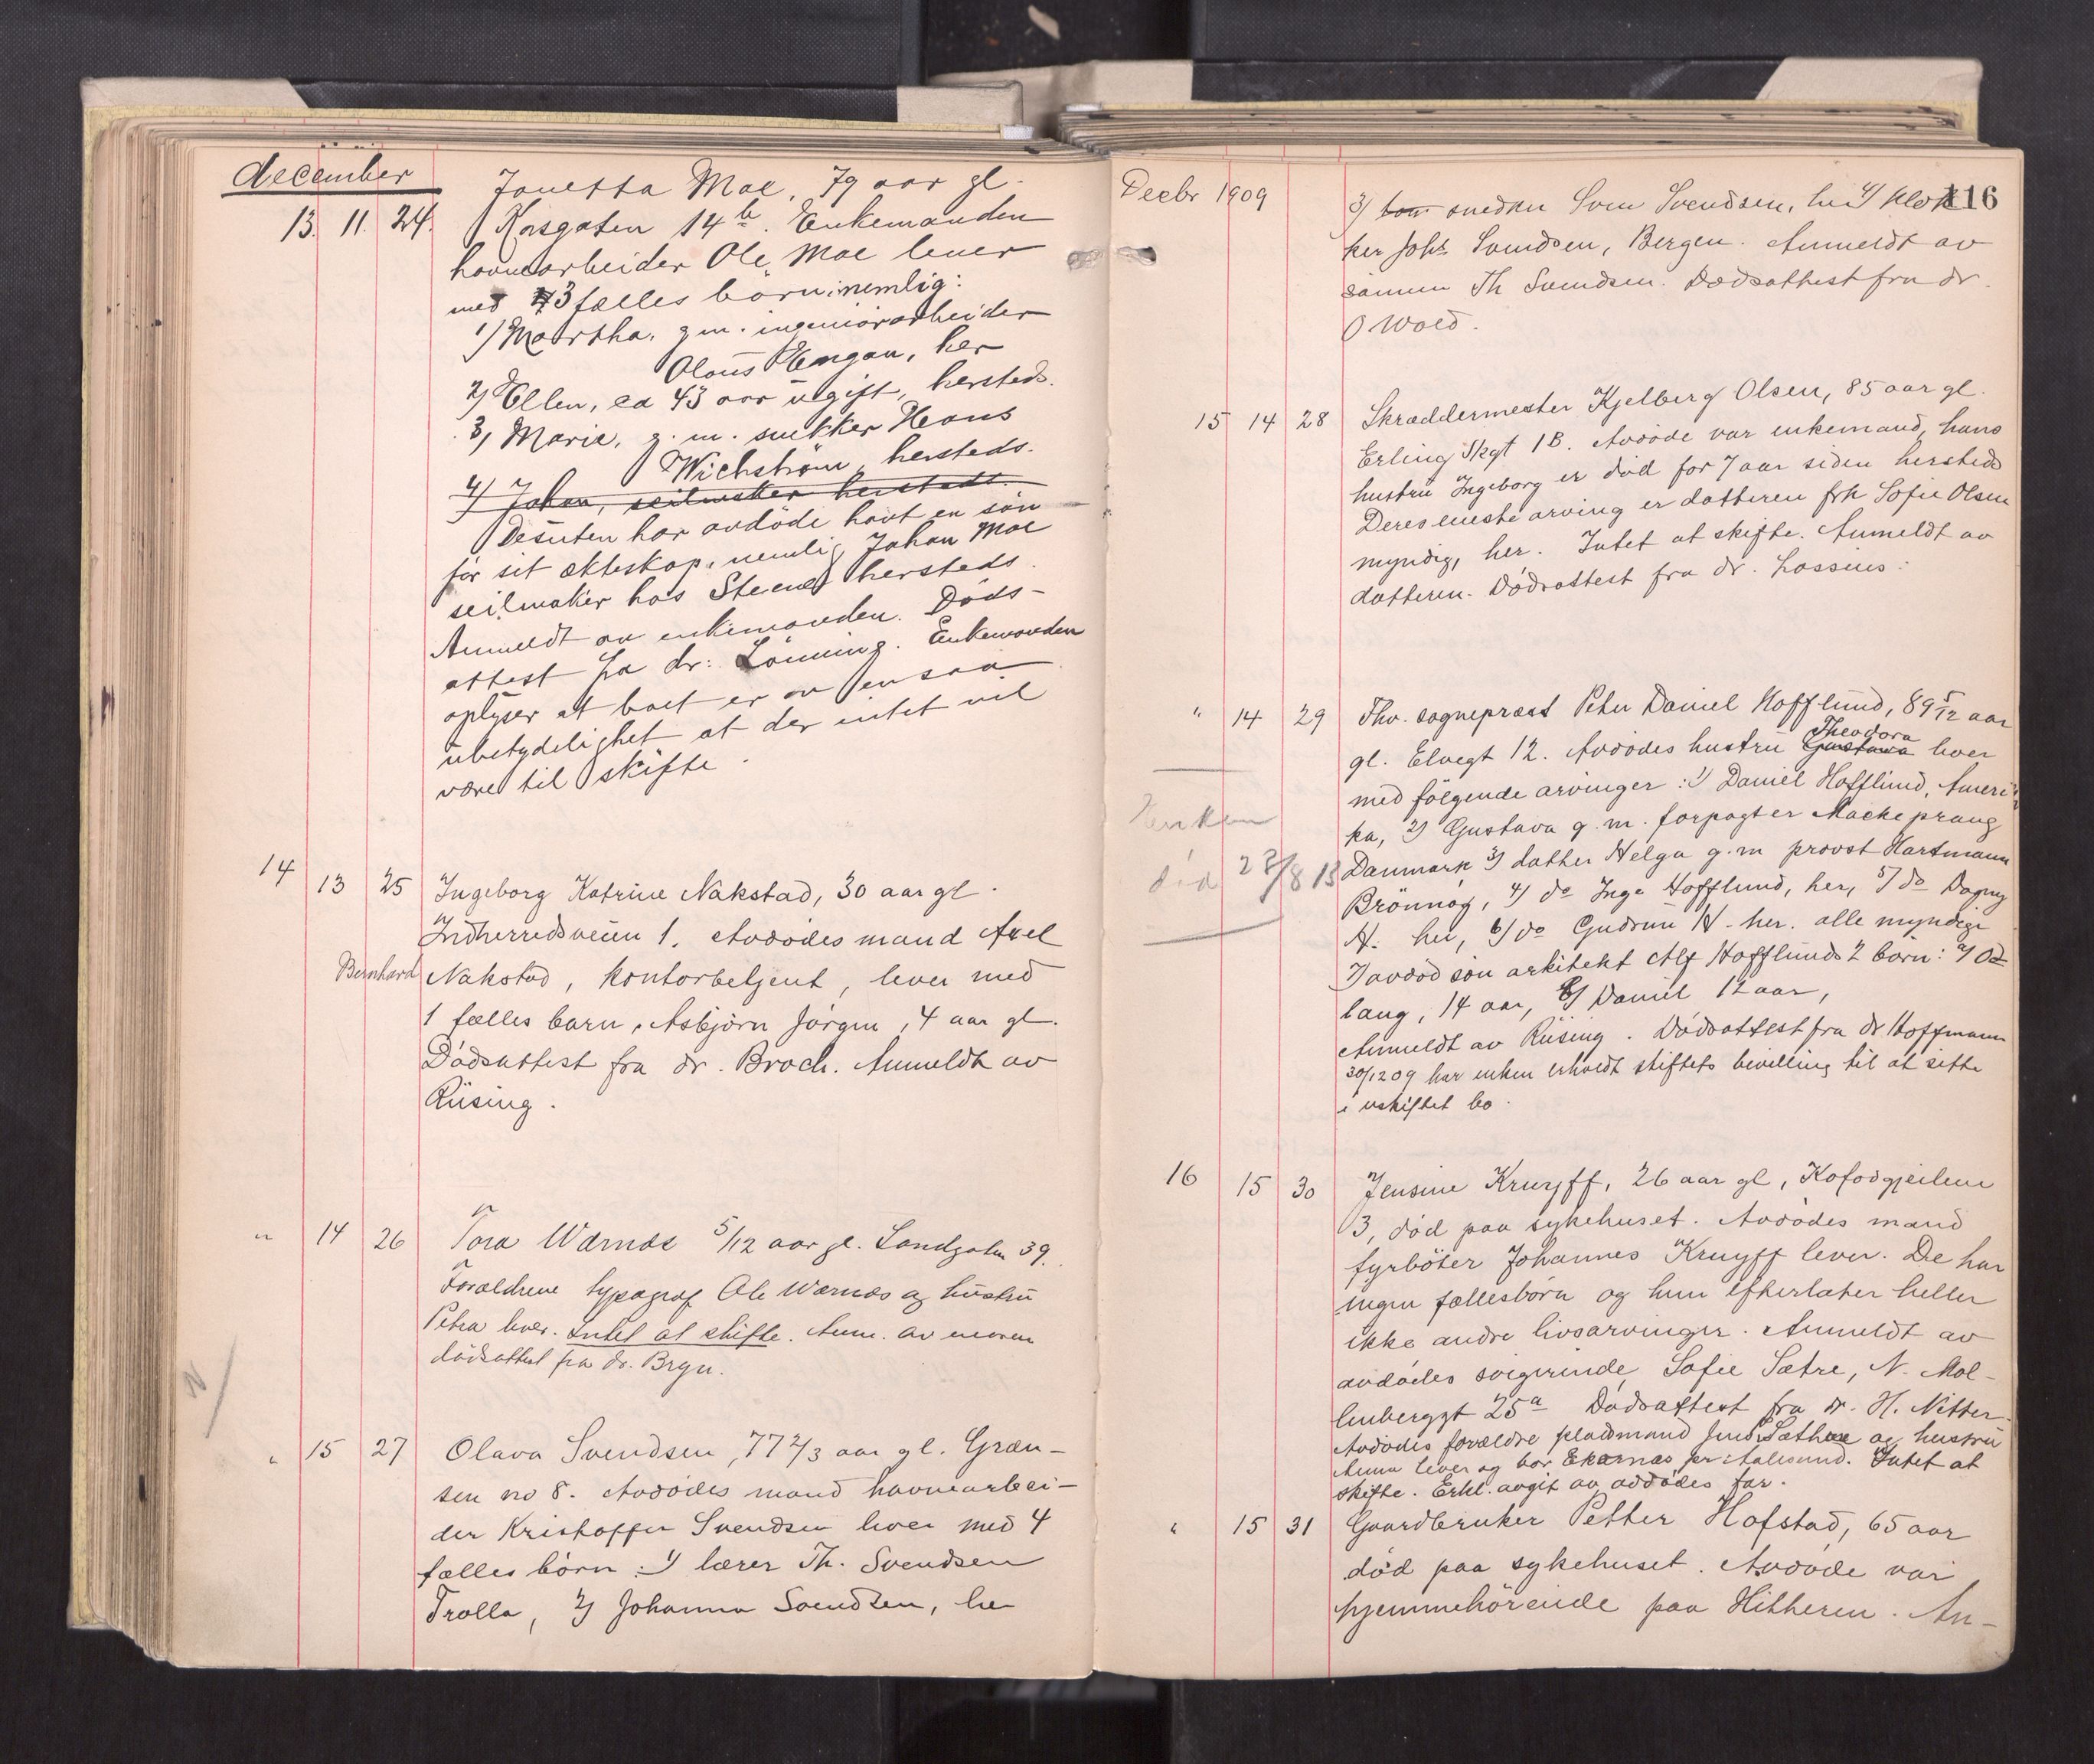 december
Jonetta Moe, 79 aar gl.
13. 11. 24. Korsgaten 14b. Enkemanden
havnearbeider Ole Moe lever
med 3 fælles børn nemlig:
1) Martha, g.m. ingeniörarbeider
Olaus Haugan, her
2) Ellen, ca 43 aar ugift, hersteds.
3) Marie, g.m. snekker Hans
Wichström, hersteds.
4) Johan, seilmaker hersteds.
Desuten har avdöde havt en sön
för sit ekteskap, nemlig Johan Moe
seilmaker hos Steen hersteds.
Anmeldt av enkemanden. Döds-
attest fra dr. Lönning. Enkemanden
oplyser at boet er av en saa
ubetydelighet at der intet vil
være til skifte.
14 13 25 Ingeborg Katrine Nakstad, 30 aar gl.
Indherredsveien 1. Avdödes mand Axel
Bernhard Nakstad, kontorbetjent, lever med
1 fælles barn, Asbjörn Jörgen, 4 aar gl.
Dödsattest fra dr. Broch. Anmeldt av
Riising.
" 14 26 Tora Wærnæs 5/12 aar gl. Sandgaten 39.
Forældrene typograf Ole Wærnæs og hustru
Petra lever. Intet at skifte. Anm. av moren
dödsattest fra dr. Bryn.
" 15 27 Olava Svendsen, 77 2/3 aar gl. Græn-
sen no 8. Avdödes mand havnearbei-
der Kristoffer Svendsen lever med 4
fælles börn: 1) lærer Th. Svendsen
Trolla, 2) Johanna Svendsen, her
Decbr 1909
116
3) snedker Sven Svendsen, her 4) klok
ker Johs Svendsen, Bergen. Anmeldt av
sönnen Th Svendsen. Dödsattest fra dr.
O Wold.
15 14 28 Skræddermester Kjelberg Olsen, 85 aar gl.
Erling Skgt 1B. Avdöde var enkemand, hans
hustru Ingeborg er död for 7 aar siden hersteds
Deres eneste arving er datteren frk Sofie Olsen
myndig, her. Intet at skifte. Anmeldt av
datteren. Dödsattest fra dr. Lossius.
" 14 29 Fhv. sognepræst Peter Daniel Hofflund, 89 5/12 aar
Theodora
gl. Elvegt 12. Avdödes hustru Gustava lever
med fölgende arvinger: 1) Daniel Hofflund, Ameri
Enken
ka, 2) Gustava g.m. forpagter Mackeprang
död 27/8 13
Danmark 3) datter Helga g.m provst Hartmann
Brönnöy, 4) do Inga Hofflund, her, 5) do Dagny
H. her, 6) do Gudrun H. her. alle myndige
7) avdöd sön arkitekt Alf Hofflunds 2 börn: a) Od
laug, 14 aar, b) Daniel 12 aar,
Anmeldt av Riising. Dödsattest fra dr Hoffmann
30/12 09 har enken erholdt skiftets bevilling til at sitte
i uskiftet bo.
16 15 30 Jensine Kruyff, 26 aar gl, Kofodgjeilene
3, död paa sykehuset. Avdödes mand
fyrböter Johannes Kruyff lever. De har
ingen fællesbörn og hun efterlater heller
ikke andre livsarvinger. Anmeldt av
avdödes svigerinde Sofie Sætre, N. Möl-
lenberggt 25a Dödsattest fra dr. H. Nitter.
Avdödes forældre pladsmand Jens Sæthre og hustru
Anna lever og bor Ekornæs pr Aalesund. Intet at
skifte. Erkl. avgit av avdödes far.
" 15 31 Gaardbruker Petter Hofstad, 65 aar
död paa sykehuset. Avdöde var
hjemmehörende paa Hitteren. An-